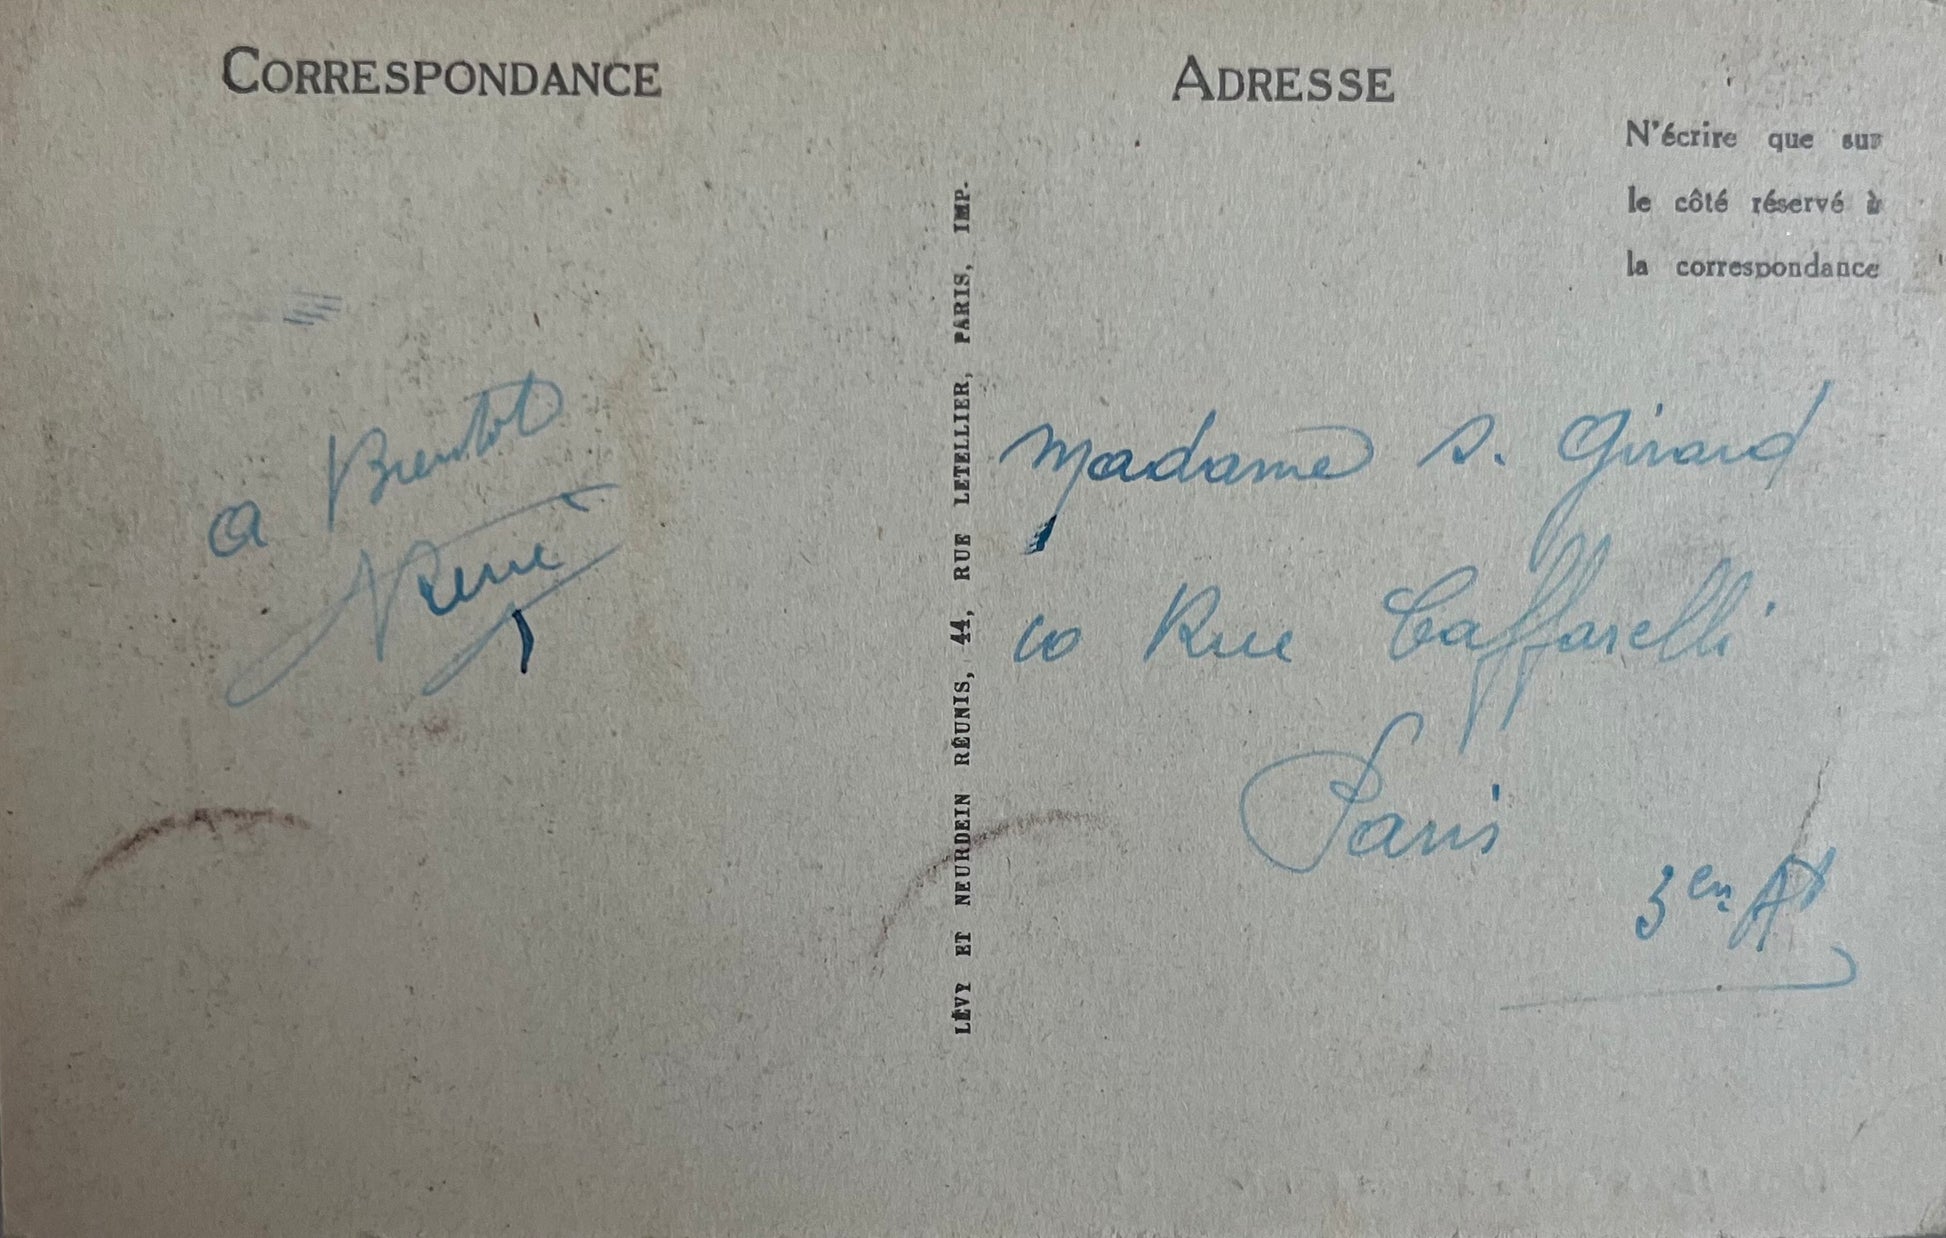 CORRESPONDANCE
a Bientot
René
LÉVY ET NEURDEIN RÉUNIS, 44, RUE LETELLIER, PARIS, IMP.
ADRESSE
N'écrire que sur
le côté réservé à
la correspondance
Madame S. Girard
10 Rue Caffarelli
Paris
3en At